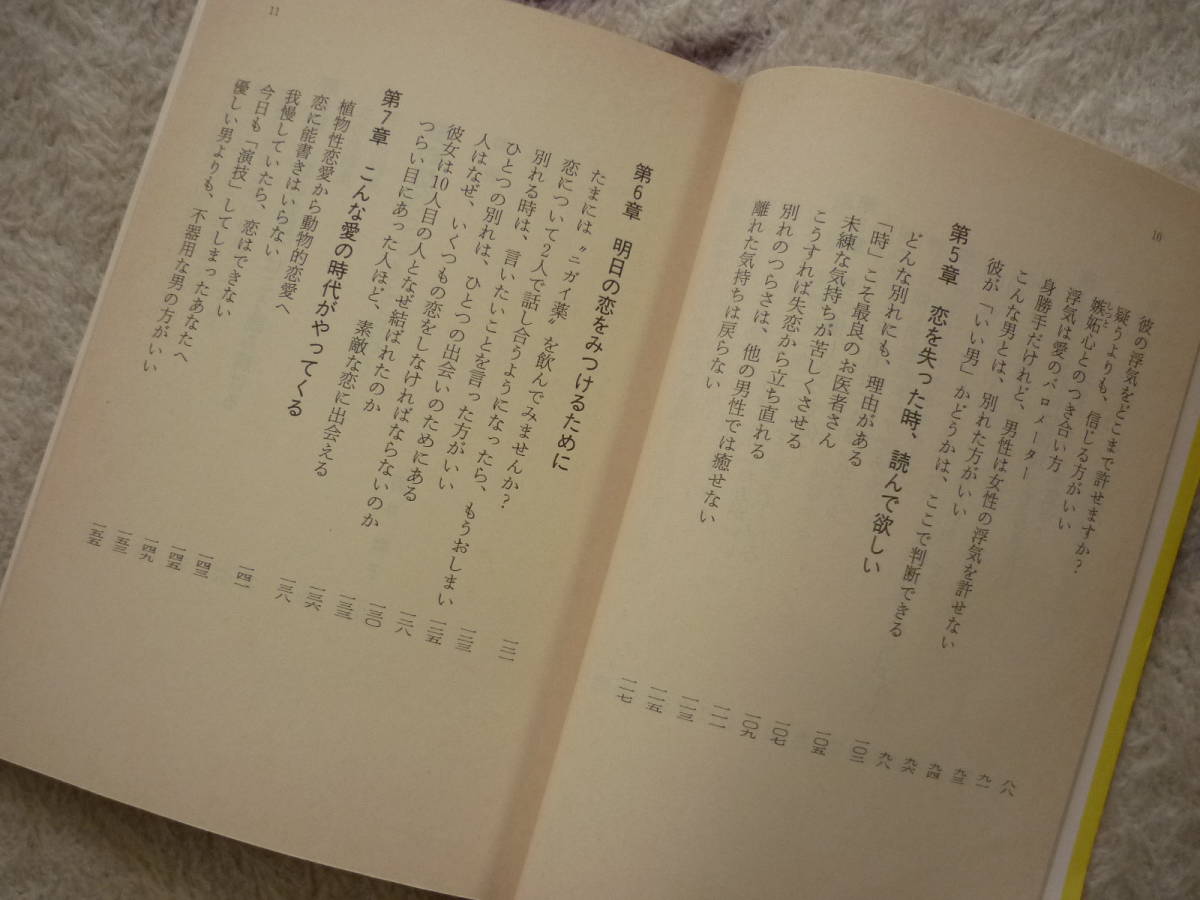 10
彼の浮気をどこまで許せますか? 八八
疑うよりも、信じる方がいい 九一
嫉妬心とのつき合い方 九三
しっと
浮気は愛のバロメーター 九四
身勝手だけれど、男性は女性の浮気を許せない 九六
こんな男とは、別れた方がいい 九八
彼が「いい男」かどうかは、ここで判断できる 一〇二
第5章 恋を失った時、読んで欲しい 一〇五
どんな別れにも、理由がある 一〇七
「時」こそ最良のお医者さん 一〇九
未練な気持ちが苦しくさせる 一一一
こうすれば失恋から立ち直れる 一一三
別れのつらさは、他の男性では癒せない 一一五
離れた気持ちは戻らない 一一七
11
第6章 明日の恋をみつけるために 一二一
たまには〝ニガイ薬〟を飲んでみませんか? 一二三
恋について2人で話し合うようになったら、もうおしまい 一二五
別れる時は、言いたいことを言った方がいい 一二八
ひとつの別れは、ひとつの出会いのためにある 一三〇
人はなぜ、いくつもの恋をしなければならないのか 一三三
彼女は10人目の人となぜ結ばれたのか 一三六
つらい目にあった人ほど、素敵な恋に出会える 一三八
第7章 こんな愛の時代がやってくる 一四一
植物性恋愛から動物的恋愛へ 一四三
恋に能書きはいらない 一四五
我慢していたら、恋はできない 一四九
今日も「演技」してしまったあなたへ 一五三
優しい男よりも、不器用な男の方がいい 一五五